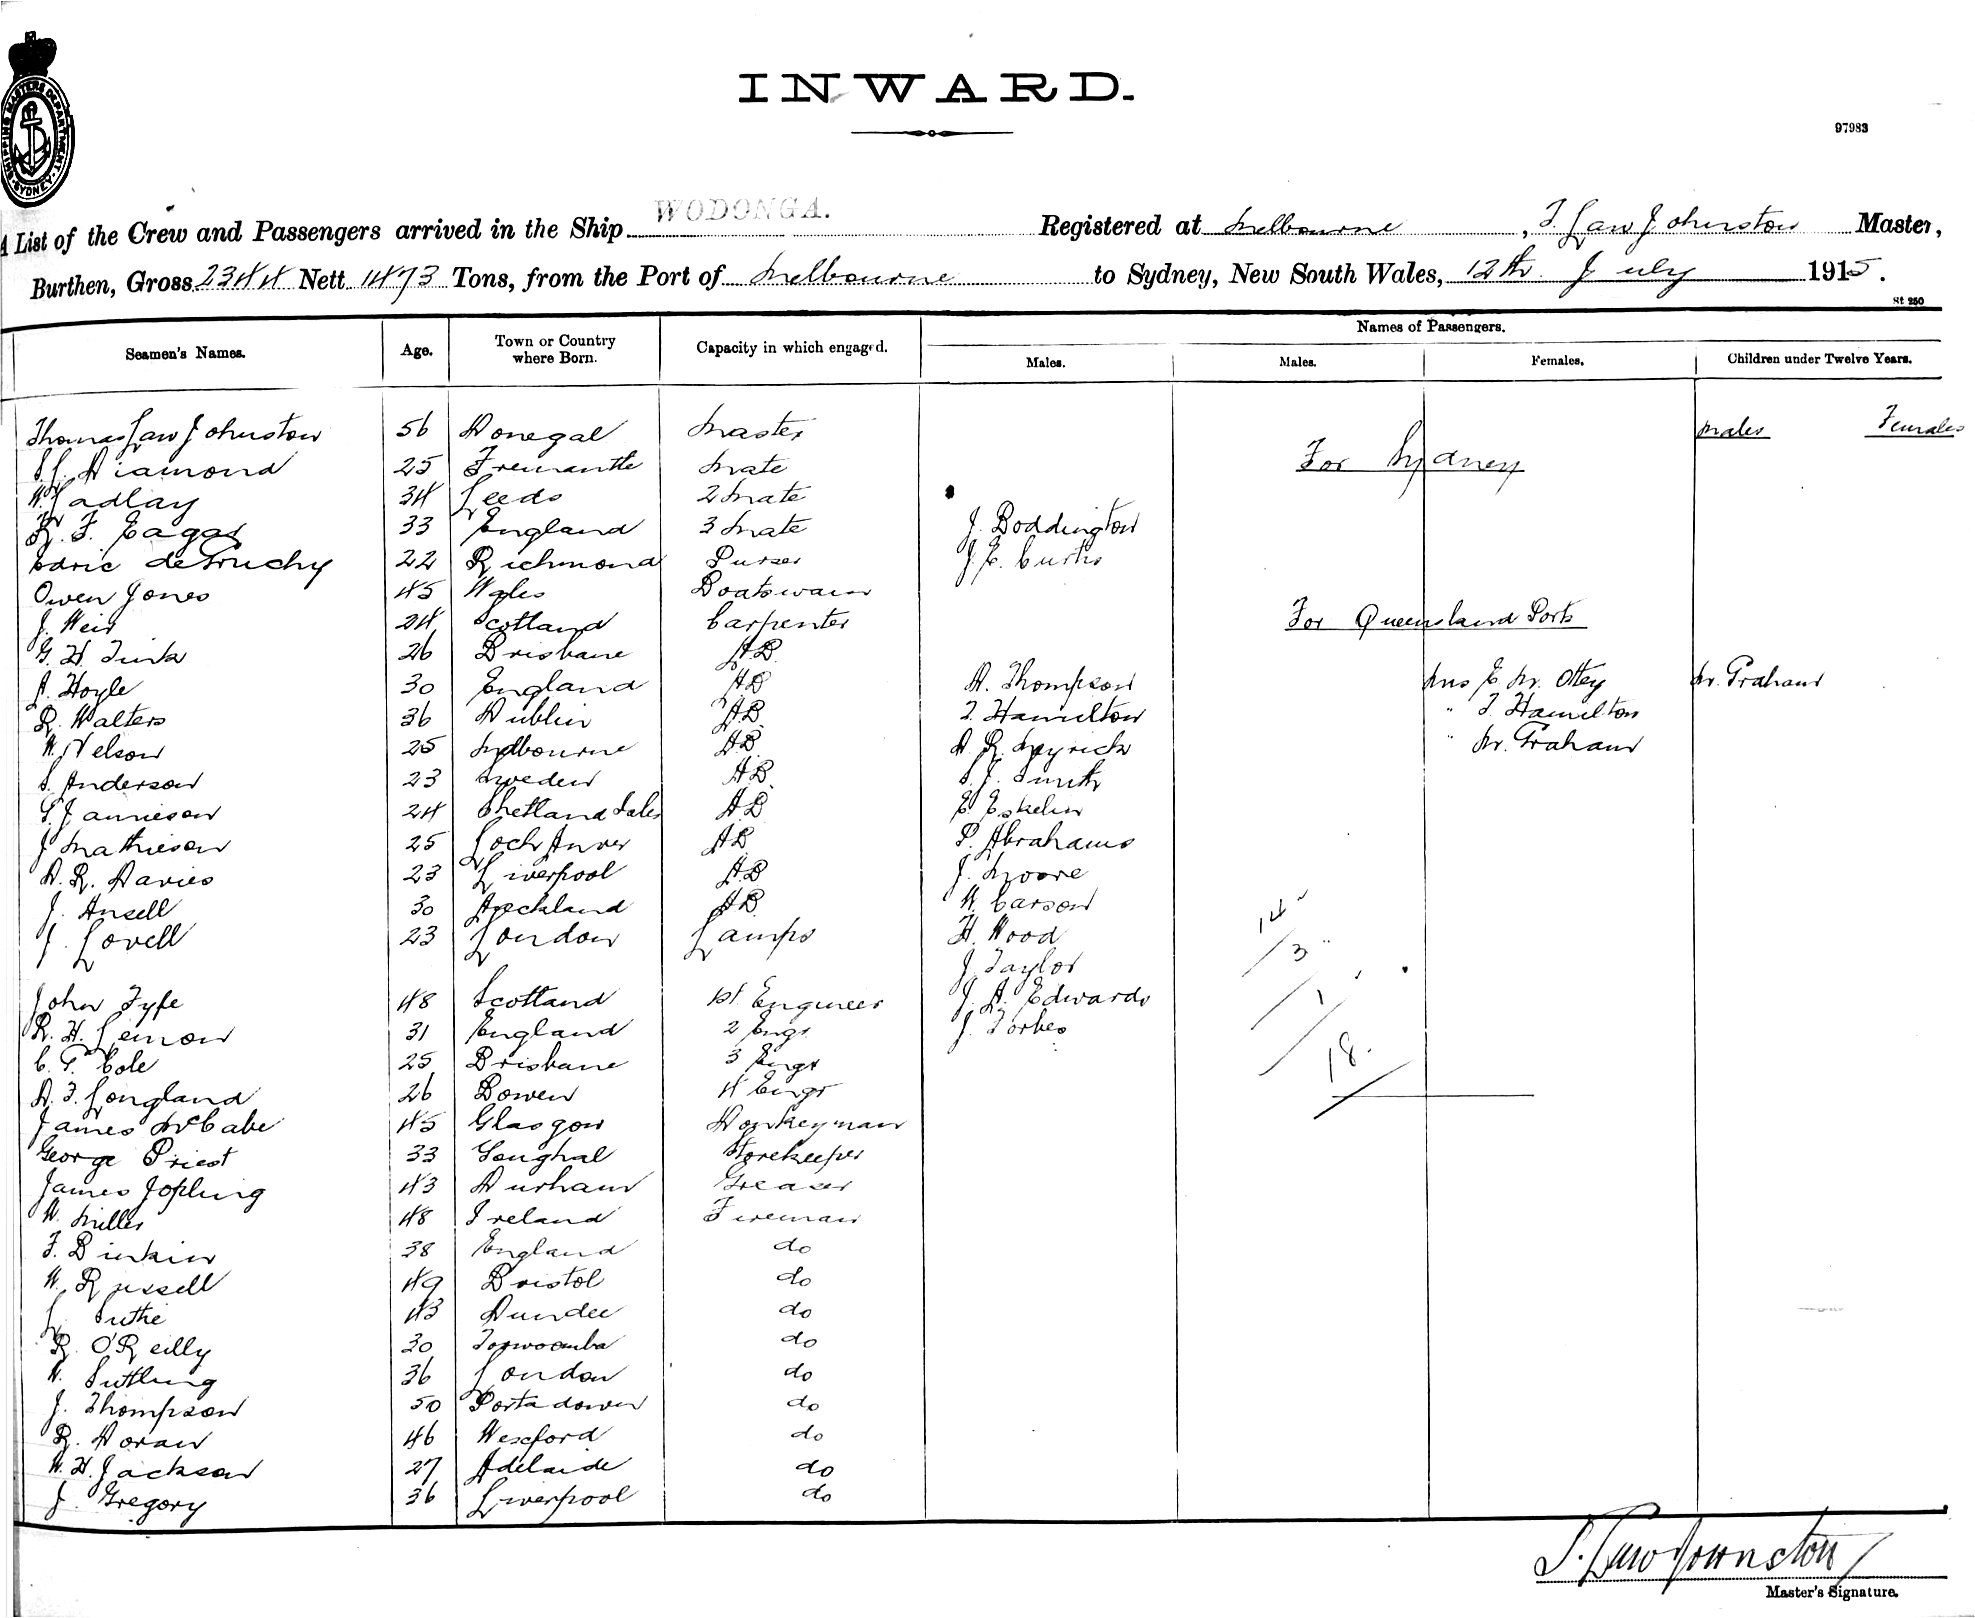 SHIPPING MASTERS DEPARTMENT SYDNEY
INWARD.
97983
A List of the Crew and Passengers arrived in the Ship WODONGA. Registered at Melbourne, T. Law Johnston Master,
Burthen, Gross 2344 Nett 1473 Tons, from the Port of Melbourne to Sydney, New South Wales, 12th July 1915.
St 250
Names of Passengers.
Seamen's Names. Age. Town or Country where Born. Capacity in which engaged. Males. Males. Females. Children under Twelve Years.
Males Females
Thomas Law Johnston 56 Donegal Master
For Sydney
Diamond 25 Fremantle Mate
W. Ladlay 34 Leeds 2 Mate
R. F. Eagar 33 England 3 Mate J. Boddington
Edric deGruchy 22 Richmond Purser J. E. Curtis
Owen Jones 45 Wales Boatswain
J. Weir 24 Scotland Carpenter For Queensland Ports
G. H. Turk 26 Brisbane AB
A. Hoyle 30 England AB A. Thompson Mrs E. M. Ottey M. Graham
R. Walters 36 Dublin AB T. Hamilton " T. Hamilton
W. Nelson 25 Melbourne AB D. R. Meyrick " M. Graham
S. Anderson 23 Sweden AB S. J. Smith
G. Jamieson 24 Shetland Isles AB E. Eskelin
J. Mathieson 25 Loch Inver AB P. Abrahams
D. R. Davies 23 Liverpool AB J. Moore
J. Ansell 30 Auckland AB W. Carson
J. Lovell 23 London Lamps H. Wood
J. Taylor
John Fyfe 48 Scotland 1st Engineer J. A. Edwards
R. H. Lemon 31 England 2 Engr J. Forbes
C. G. Cole 25 Brisbane 3 Engr
A. F. Longland 26 Bowen 4 Engr
James McCabe 45 Glasgow Donkeyman
George Priest 33 Youghal Storekeeper
James Jopling 43 Durham Greaser
W. Miller 48 Ireland Fireman
F. Binkin 38 England do
W. Russell 49 Bristol do
L. Suthie 43 Dundee do
R. O'Reilly 30 Toowoomba do
W. Suttling 36 London do
J. Thompson 50 Portadown do
R. Doran 46 Wexford do
W. H. Jackson 27 Adelaide do
J. Gregory 36 Liverpool do
14
3
1
18.
T. Law Johnston
Master's Signature.